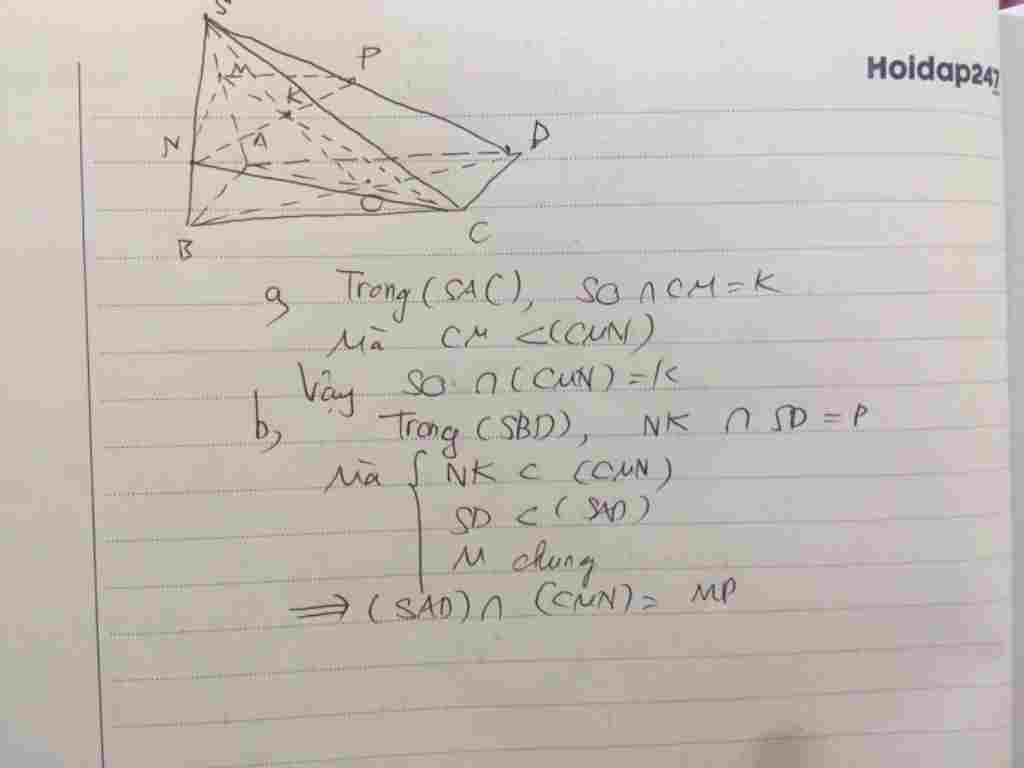 S
M
P
Hoidap247
K
N
A
D
O
B
C
a, Trong (SAC), SO ∩ CM = K
Mà CM ⊂ (CMN)
Vậy SO ∩ (CMN) = K
b, Trong (SBD), NK ∩ SD = P
Mà { NK ⊂ (CMN)
SD ⊂ (SAD)
M chung
⇒ (SAD) ∩ (CMN) = MP